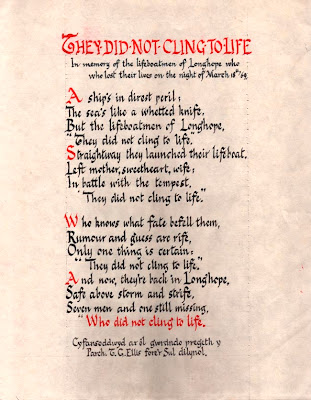 THEY·DID·NOT·CLING·TO·LIFE
In memory of the lifeboatmen of Longhope who
who lost their lives on the night of March 18th/69.
A ship's in direst peril;
The sea's like a whetted knife,
But the lifeboatmen of Longhope,
"They did not cling to life."
Straightway they launched their lifeboat.
Left mother, sweetheart, wife;
In battle with the tempest,
"They did not cling to life."
Who knows what fate befell them,
Rumour and guess are rife,
Only one thing is certain:
"They did not cling to life."
And now, they're back in Longhope,
Safe above storm and strife,
Seven men and one still missing,
"Who did not cling to life.
Cyfansoddwyd ar ôl gwrando pregeth y
Parch. T. G. Ellis fore'r Sul dilynol.